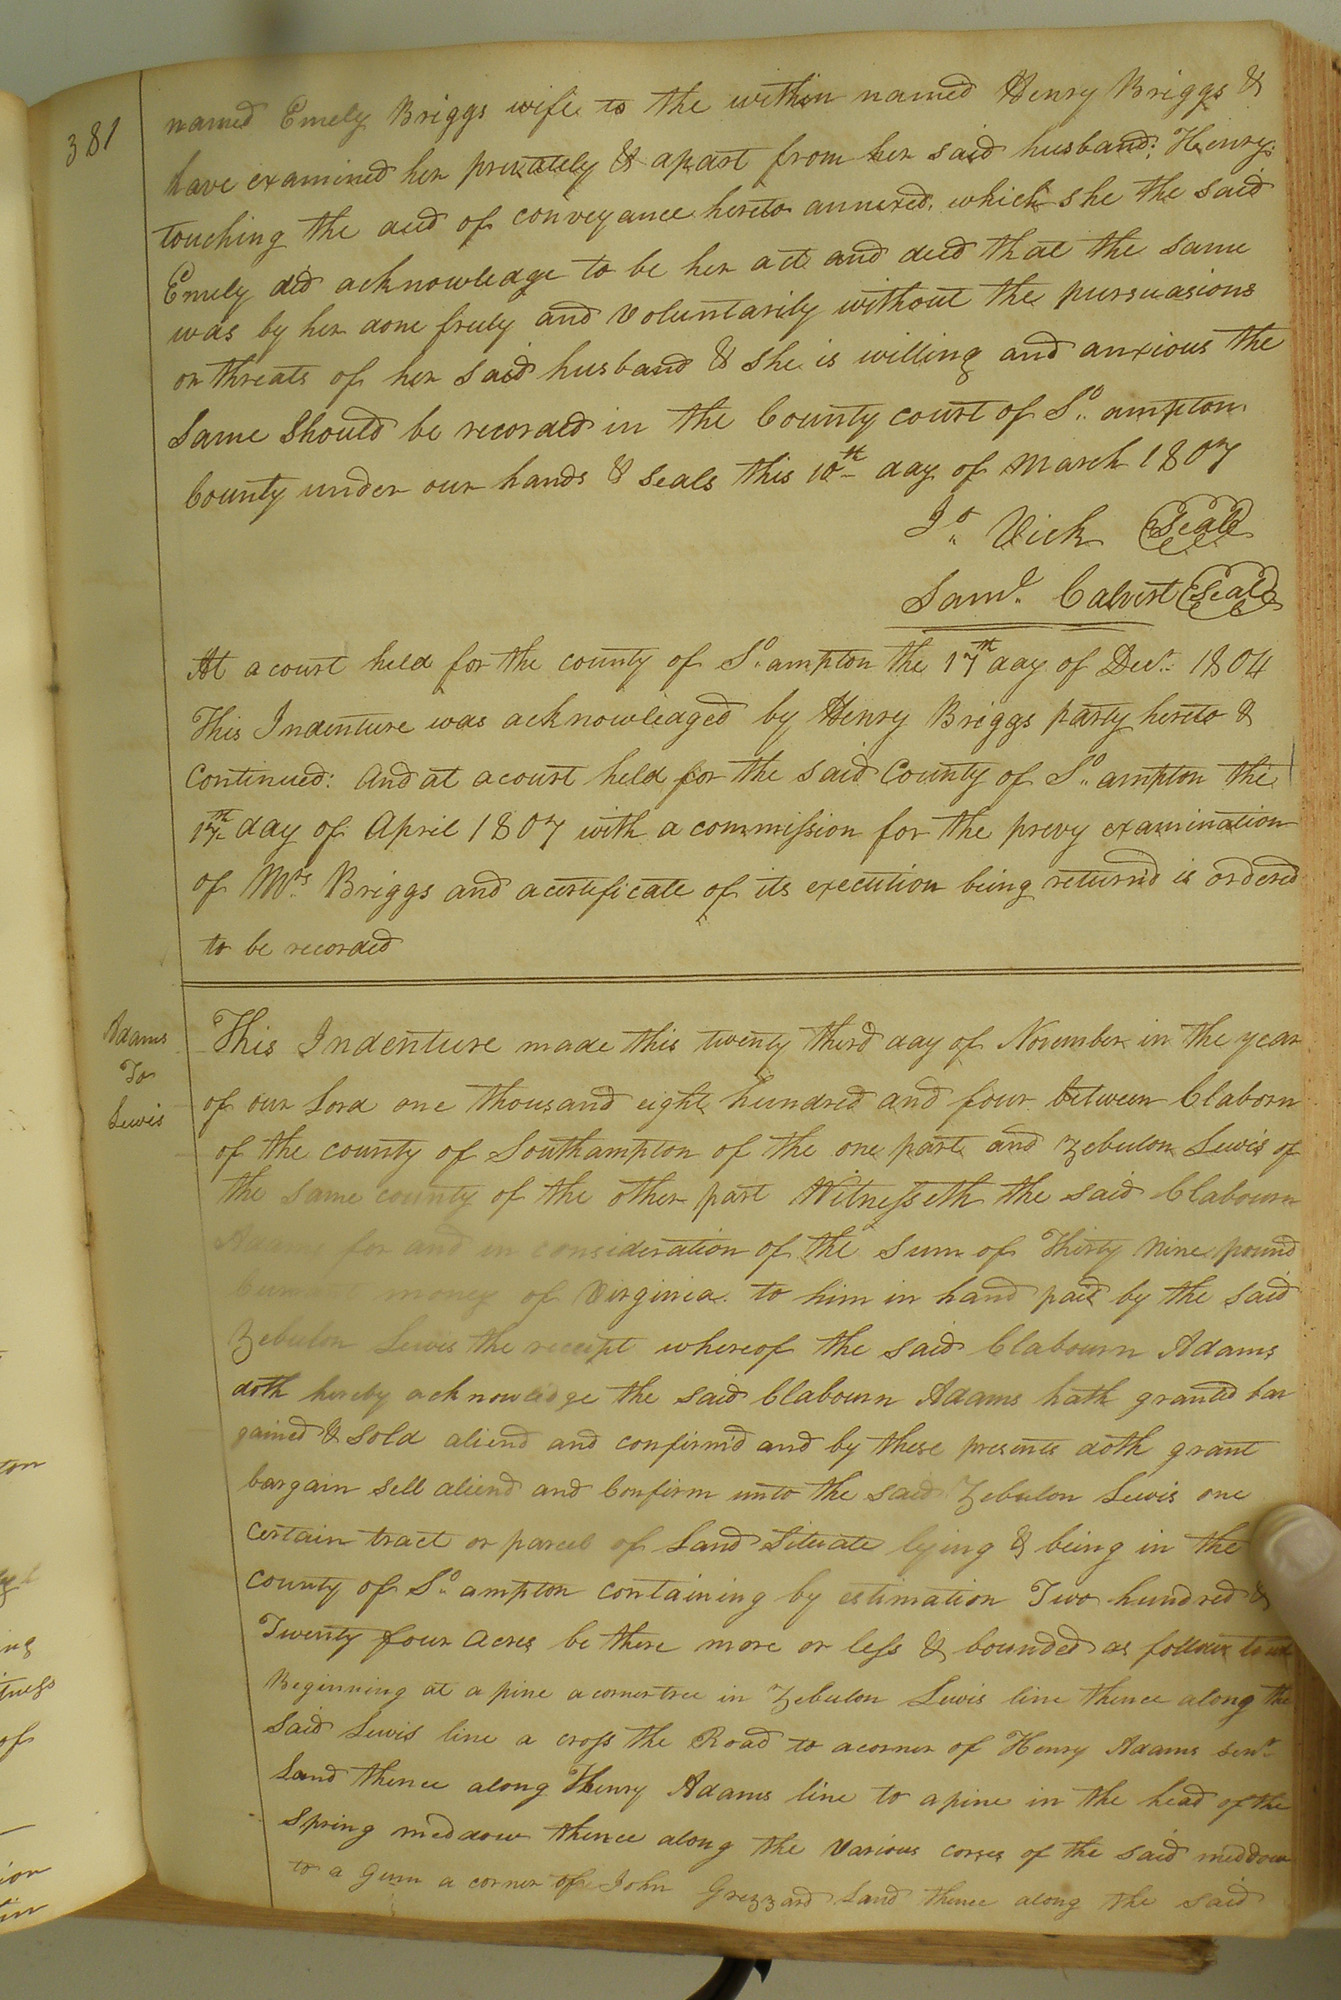 381
named Emely Briggs wife to the within named Henry Briggs &
have examined her privately & apart from her said husband: Henry:
touching the deed of conveyance hereto annexed, which she the said
Emely did acknowledge to be her act and deed that the same
was by her done freely and voluntarily without the pursuasions
or threats of her said husband & she is willing and anxious the
Same Should be recorded in the County court of So. ampton
County under our hands & seals this 10th day of March 1807
Jo. Vick Seal
Saml. Calvert Seal
At a court held for the county of So. ampton the 17th day of Decr. 1804
This Indenture was acknowledged by Henry Briggs party hereto &
Continued: And at a court held for the said County of So. ampton the
17th day of April 1807 with a commission for the prevy examination
of Mrs Briggs and a certificate of its execution being return'd is ordered
to be recorded
Adams
To
Lewis
This Indenture made this twenty third day of November in the year
of our Lord one thousand eight hundred and four between Claborn
of the county of Southampton of the one part and Zebulon Lewis of
the same county of the other part Witnesseth the said Clabourn
Adams for and in consideration of the sum of Thirty Nine pound
Current money of Virginia to him in hand paid by the said
Zebulon Lewis the receipt whereof the said Clabourn Adams
doth hereby acknowledge the said Clabourn Adams hath granted bar
gained & sold aliend and confirm'd and by these presents doth grant
bargain sell aliend and Confirm unto the said Zebulon Lewis one
certain tract or parcel of Land Situate lying & being in the
county of So. ampton containing by estimation Two hundred &
Twenty four acres be there more or less & bounded as follows to wit
Beginning at a pine a cornertree in Zebulon Lewis line thence along the
said Lewis line a cross the Road to a corner of Henry Adams senr.
Land thence along Henry Adams line to a pine in the head of the
spring meddow thence along the various corses of the said meddow
to a Gum a corner of John Grezzard Land thence along the said